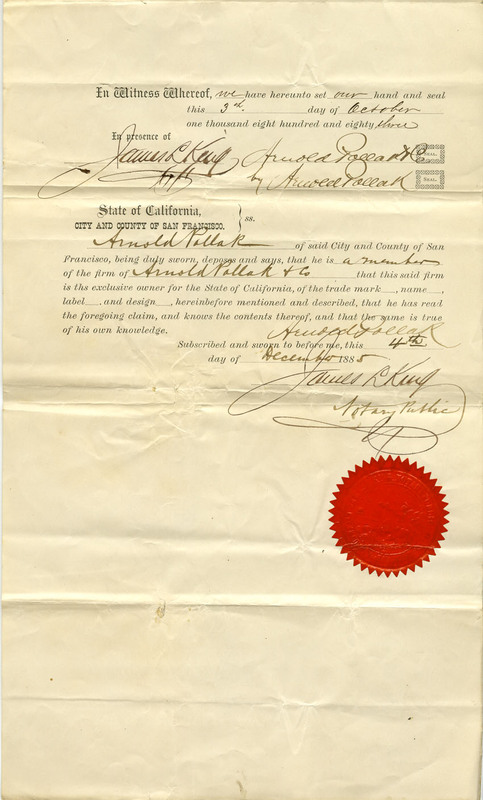 In Witness Whereof, we have hereunto set our hand and seal
this 3rd. day of October
one thousand eight hundred and eighty three
In presence of
James L King Arnold Pollak & Co SEAL.
by Arnold Pollak SEAL.
State of California, } ss.
CITY AND COUNTY OF SAN FRANCISCO.
Arnold Pollak of said City and County of San
Francisco, being duly sworn, deposes and says, that he is a member
of the firm of Arnold Pollak & Co that this said firm
is ths exclusive owner for the State of California, of the trade mark , name ,
label , and design , hereinbefore mentioned and described, that he has read
the foregoing claim, and knows the contents thereof, and that the same is true
of his own knowledge. Arnold Pollak
Subscribed and sworn to before me, this 4th
day of December 1885
James L King
Notary Public